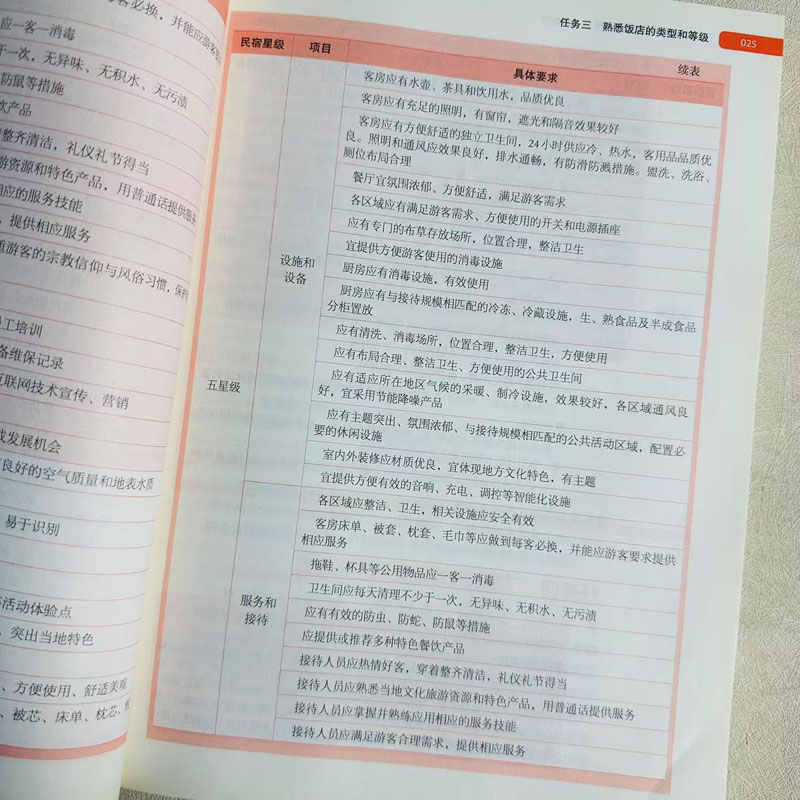 必换,并能应游客
应一客一消毒
于一次,无异味、无积水、无污渍
防鼠等措施
饮产品
整齐清洁,礼仪礼节得当
游资源和特色产品,用普通话提供服务
相应的服务技能
,提供相应服务
重游客的宗教信仰与风俗习惯,保护
员工培训
备维保记录
互联网技术宣传、营销
发展机会
良好的空气质量和地表水质
易于识别
活动体验点
,突出当地特色
、方便使用、舒适美观
、被芯、床单、枕芯、
任务三 熟悉饭店的类型和等级
025
续表
民宿星级 项目 具体要求
客房应有水壶、茶具和饮用水,品质优良
客房应有充足的照明,有窗帘,遮光和隔音效果较好
客房应有方便舒适的独立卫生间,24小时供应冷、热水,客用品品质优
良。照明和通风应效果良好,排水通畅,有防滑防溅措施。盥洗、洗浴、
厕位布局合理
餐厅宜氛围浓郁、方便舒适,满足游客需求
各区域应有满足游客需求、方便使用的开关和电源插座
应有专门的布草存放场所,位置合理,整洁卫生
宜提供方便游客使用的消毒设施
设施和
设备
厨房应有消毒设施,有效使用
厨房应有与接待规模相匹配的冷冻、冷藏设施,生、熟食品及半成食品
分柜置放
应有清洗、消毒场所,位置合理,整洁卫生,方便使用
应有布局合理、整洁卫生、方便使用的公共卫生间
五星级
应有适应所在地区气候的采暖、制冷设施,效果较好,各区域通风良
好,宜采用节能降噪产品
应有主题突出、氛围浓郁、与接待规模相匹配的公共活动区域,配置必
要的休闲设施
室内外装修应材质优良,宜体现地方文化特色,有主题
宜提供方便有效的音响、充电、调控等智能化设施
各区域应整洁、卫生,相关设施应安全有效
客房床单、被套、枕套、毛巾等应做到每客必换,并能应游客要求提供
相应服务
拖鞋、杯具等公用物品应一客一消毒
卫生间应每天清理不少于一次,无异味、无积水、无污渍
服务和
接待
应有有效的防虫、防蛇、防鼠等措施
应提供或推荐多种特色餐饮产品
接待人员应热情好客,穿着整齐清洁,礼仪礼节得当
接待人员应熟悉当地文化旅游资源和特色产品,用普通话提供服务
接待人员应掌握并熟练应用相应的服务技能
接待人员应满足游客合理需求,提供相应服务